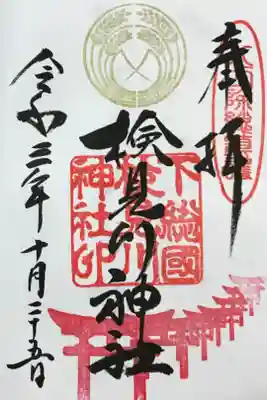 奉拝
下総國
検見川
神社印
検見川神社
令和三年十月二十五日